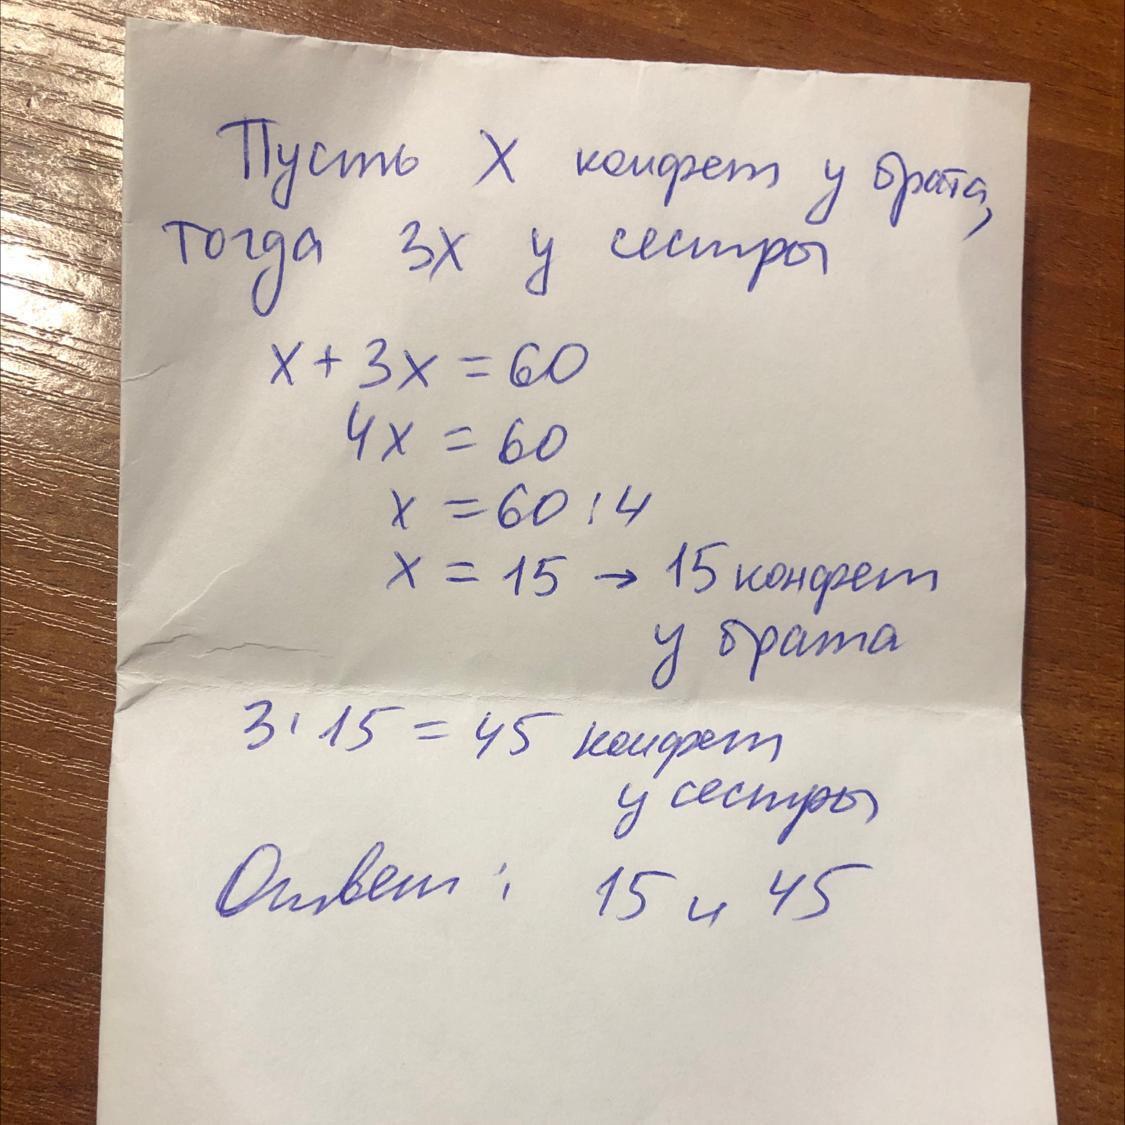 Пусть X конфет у брата,
тогда 3X у сестры
X + 3X = 60
4X = 60
X = 60 : 4
X = 15 → 15 конфет
у брата
3 · 15 = 45 конфет
у сестры
Ответ : 15 и 45